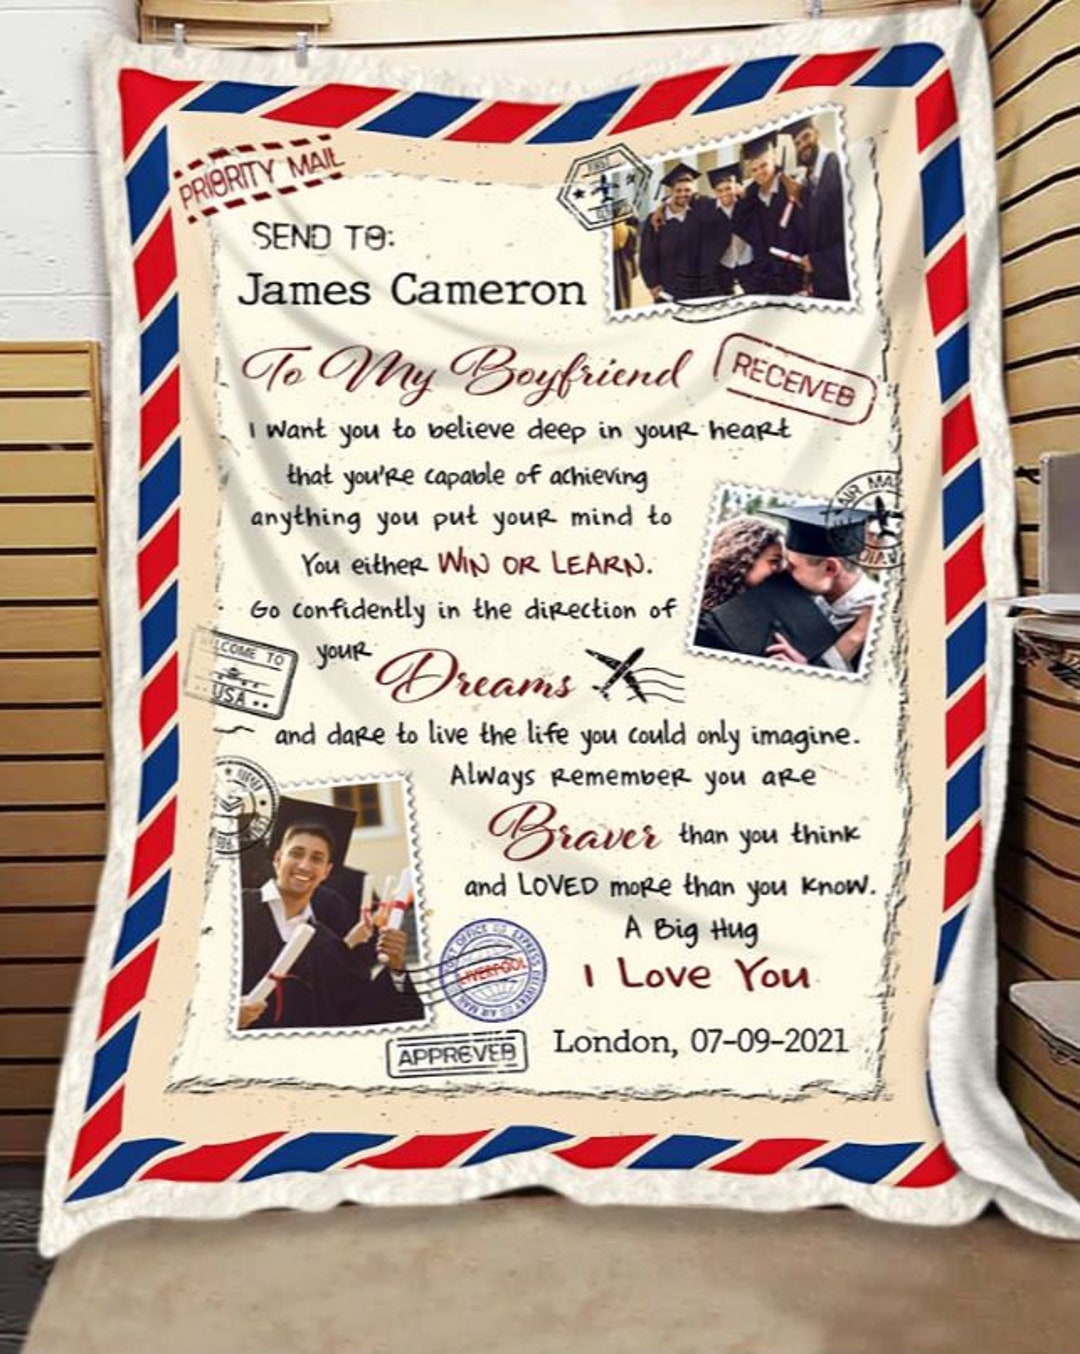 PRIORITY MAIL
SEND TO:
James Cameron
To My Boyfriend
RECEIVED
I want you to believe deep in your heart
that you're capable of achieving
anything you put your mind to
You either WIN OR LEARN.
Go confidently in the direction of
your Dreams
WELCOME TO
USA
and dare to live the life you could only imagine.
Always remember you are
Braver than you think
and LOVED more than you know.
A Big Hug
LIVERPOOL
I Love You
London, 07-09-2021
APPROVED